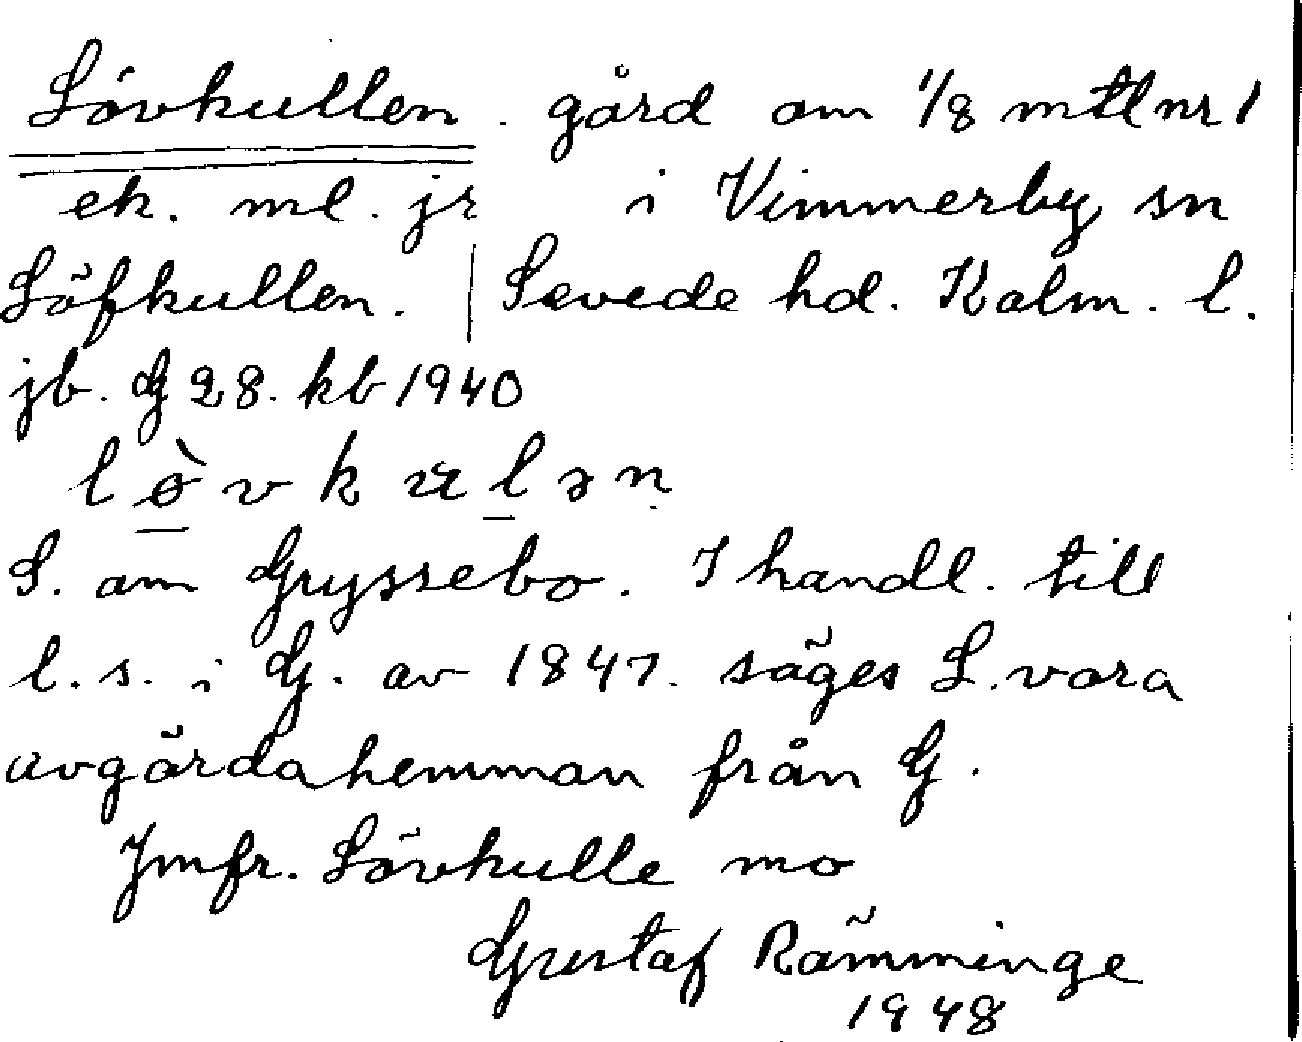 Lövkullen. gård om 1/8 mtl nr 1
ek. ml. jr i Vimmerby sn
Löfkullen. | Sevede hd. Kalm. l.
jb. G 28. kb 1940
lø̀vkuлlən
L. om Gryssebo. I handl. till
l. s. i G. av 1847. säges L. vara
avgärdahemman från G.
Jmfr. Lövkulle mo
Gustaf Rämminge
1948